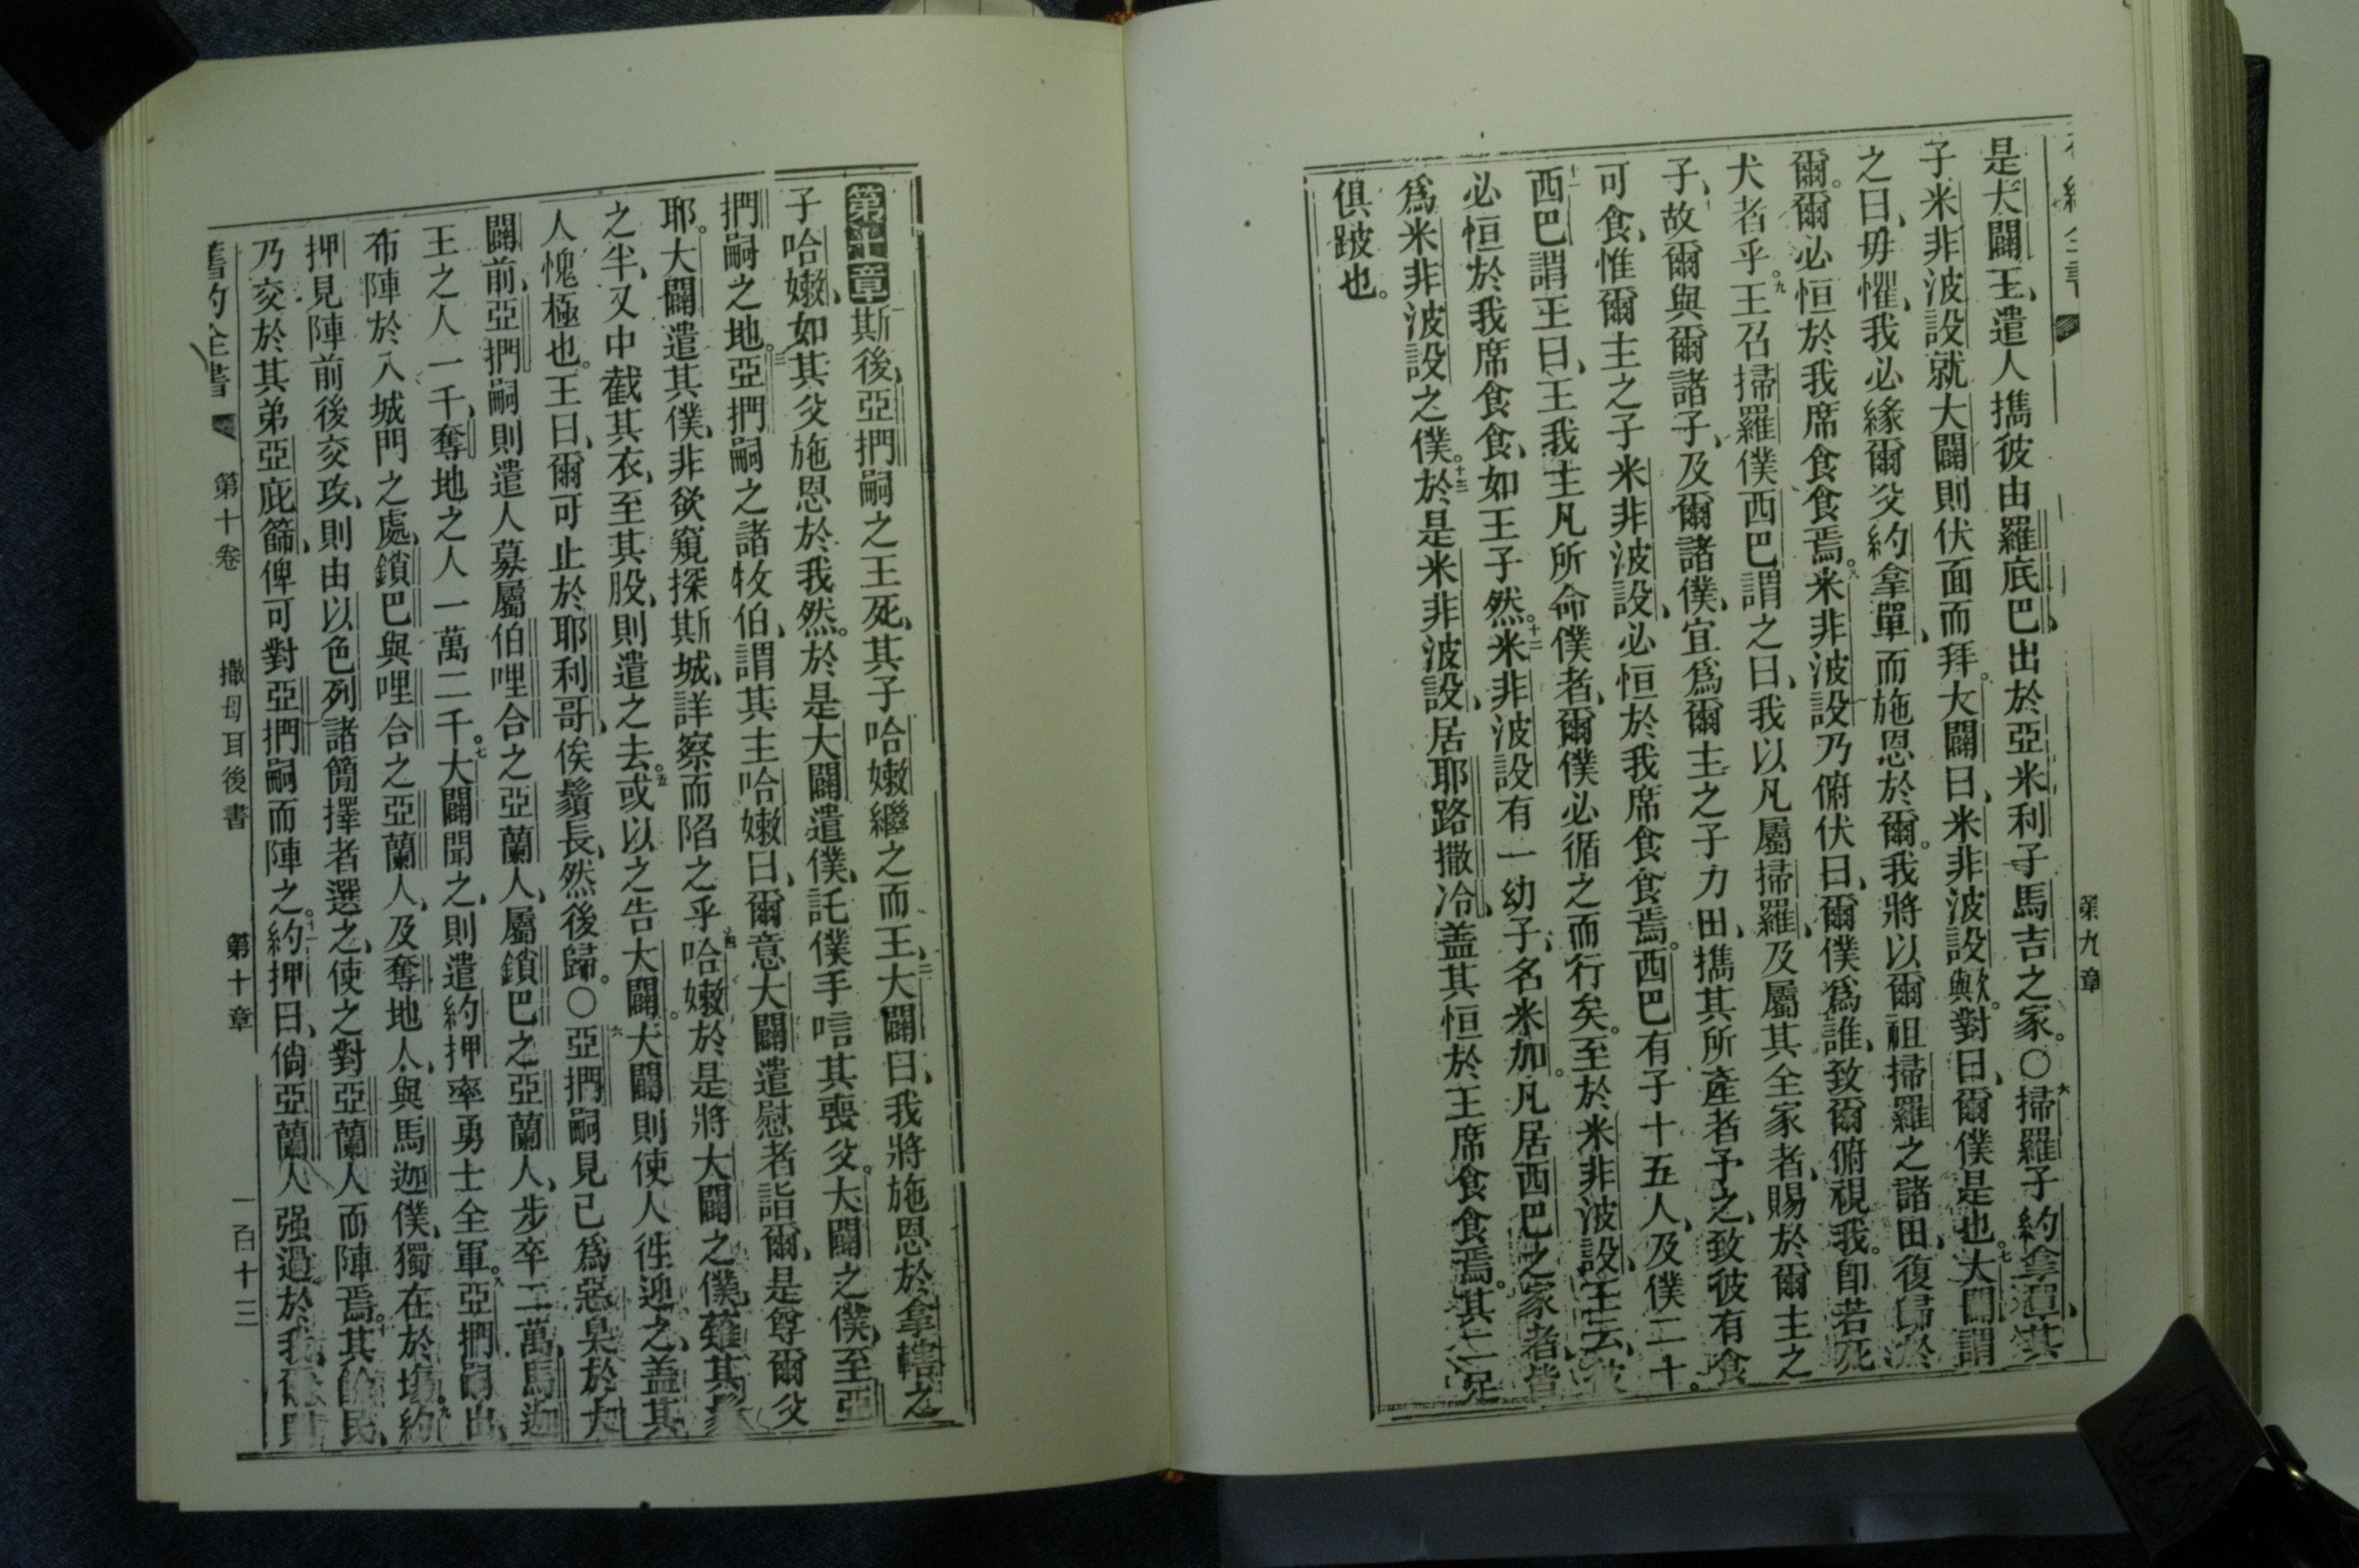 第九章
是大闢王、遣人攜彼由羅底巴、出於亞米利子馬吉之家。○六掃羅子約拿單、其
子米非波設就大闢、則伏面而拜。大闢曰、米非波設歟。對曰、爾僕是也。七大闢謂
之曰、毋懼、我必緣爾父約拿單、而施恩於爾。我將以爾祖掃羅之諸田、復歸於
爾。爾必恒於我席食食焉。八米非波設乃俯伏曰、爾僕爲誰、致爾俯視我。卽若死
犬者乎。九王召掃羅僕西巴謂之曰、我以凡屬掃羅、及屬其全家者、賜於爾主之
子、故爾與爾諸子、及爾諸僕、宜爲爾主之子力田、攜其所產者予之、致彼有食
可食、惟爾主之子米非波設、必恒於我席食食焉。西巴有子十五人、及僕二十。
十一西巴謂王曰、王我主凡所命僕者、爾僕必循之而行矣。至於米非波設、王云、彼
必恒於我席食食、如王子然。十二米非波設有一幼子、名米加。凡居西巴之家者、皆
爲米非波設之僕。十三於是米非波設、居耶路撒冷、盖其恒於王席食食焉。其二足
俱跛也。
第十章斯後、亞捫嗣之王死、其子哈嫩繼之而王、二大闢曰、我將施恩於拿轄之
子哈嫩、如其父施恩於我然。於是大闢遣僕、託僕手唁其喪父。大闢之僕、至亞
捫嗣之地。三亞捫嗣之諸牧伯、謂其主哈嫩曰、爾意大闢遣慰者詣爾、是尊爾父
耶。大闢遣其僕、非欲窺探斯城、詳察而陷之乎。四哈嫩於是將大闢之僕、薙其鬚
之半、又中截其衣、至其股、則遣之去。五或以之告大闢。大闢則使人徃迎之、盖其
人愧極也。王曰、爾可止於耶利哥、俟鬚長、然後歸。○六亞捫嗣見己爲惡臭於大
闢前、亞捫嗣則遣人募屬伯哩合之亞蘭人、屬鎖巴之亞蘭人、步卒二萬、馬迦
王之人一千、奪地之人一萬二千。七大闢聞之、則遣約押率勇士全軍。八亞捫嗣出、
布陣於入城門之處、鎖巴與哩合之亞蘭人、及奪地人、與馬迦僕、獨在於塲。九約
押見陣前後交攻、則由以色列諸簡擇者選之、使之對亞蘭人而陣焉。十其餘民、
乃交於其弟亞庇篩、俾可對亞捫嗣而陣之。十一約押曰、倘亞蘭人强過於我、爾則
舊約全書 第十卷 撒母耳後書 第十章 一百十三